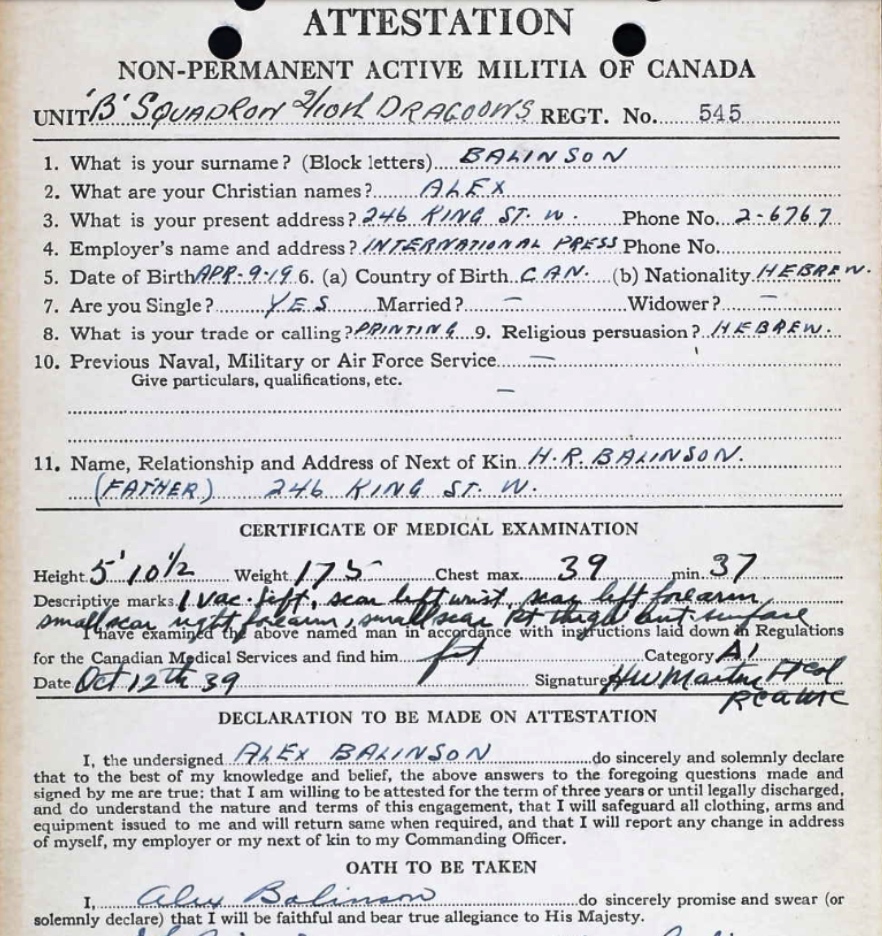 ATTESTATION
NON-PERMANENT ACTIVE MILITIA OF CANADA
UNIT 'B' SQUADRON 2/10th DRAGOONS REGT. No. 545
1. What is your surname? (Block letters) BALINSON
2. What are your Christian names? ALEX
3. What is your present address? 246 KING ST. W. Phone No. 2-6767
4. Employer's name and address? INTERNATIONAL PRESS Phone No.
5. Date of Birth APR-9-19 6. (a) Country of Birth CAN. (b) Nationality HEBREW.
7. Are you Single? YES Married? — Widower? —
8. What is your trade or calling? PRINTING 9. Religious persuasion? HEBREW.
10. Previous Naval, Military or Air Force Service —
Give particulars, qualifications, etc. —
11. Name, Relationship and Address of Next of Kin H.R. BALINSON.
(FATHER) 246 KING ST. W.
CERTIFICATE OF MEDICAL EXAMINATION
Height 5' 10 1/2 Weight 175 Chest max. 39 min. 37
Descriptive marks 1 vac. left, scar left wrist, scar left forearm
small scar right forearm, small scar Rt thigh ant. surface
I have examined the above named man in accordance with instructions laid down in Regulations
for the Canadian Medical Services and find him fit Category A1
Date Oct 12th 39 Signature HW Martin
RCAMC
DECLARATION TO BE MADE ON ATTESTATION
I, the undersigned ALEX BALINSON do sincerely and solemnly declare
that to the best of my knowledge and belief, the above answers to the foregoing questions made and
signed by me are true; that I am willing to be attested for the term of three years or until legally discharged,
and do understand the nature and terms of this engagement, that I will safeguard all clothing, arms and
equipment issued to me and will return same when required, and that I will report any change in address
of myself, my employer or my next of kin to my Commanding Officer.
OATH TO BE TAKEN
I, Alex Balinson do sincerely promise and swear (or
solemnly declare) that I will be faithful and bear true allegiance to His Majesty.